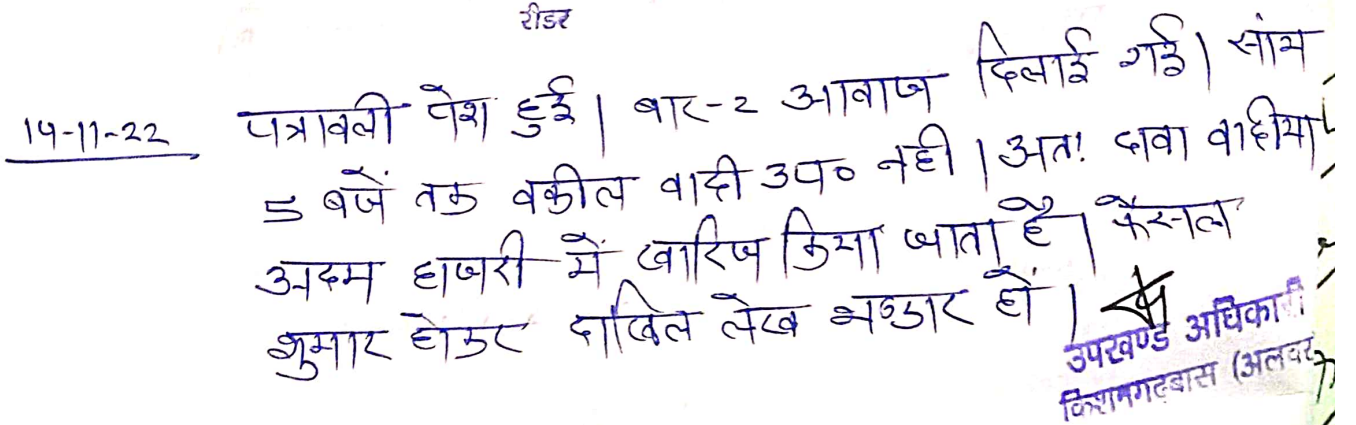 रीडर
14-11-22 पत्रावली पेश हुई। बार-2 आवाज दिलाई गई। सांय
5 बजें तक वकील वादी उप० नही। अतः दावा वादीया
अदम हाजरी में खारिज किया जाता है। फैसल
शुमार होकर दाखिल लेख भण्डार हों।
उपखण्ड अधिकारी
किशनगढबास (अलवर)